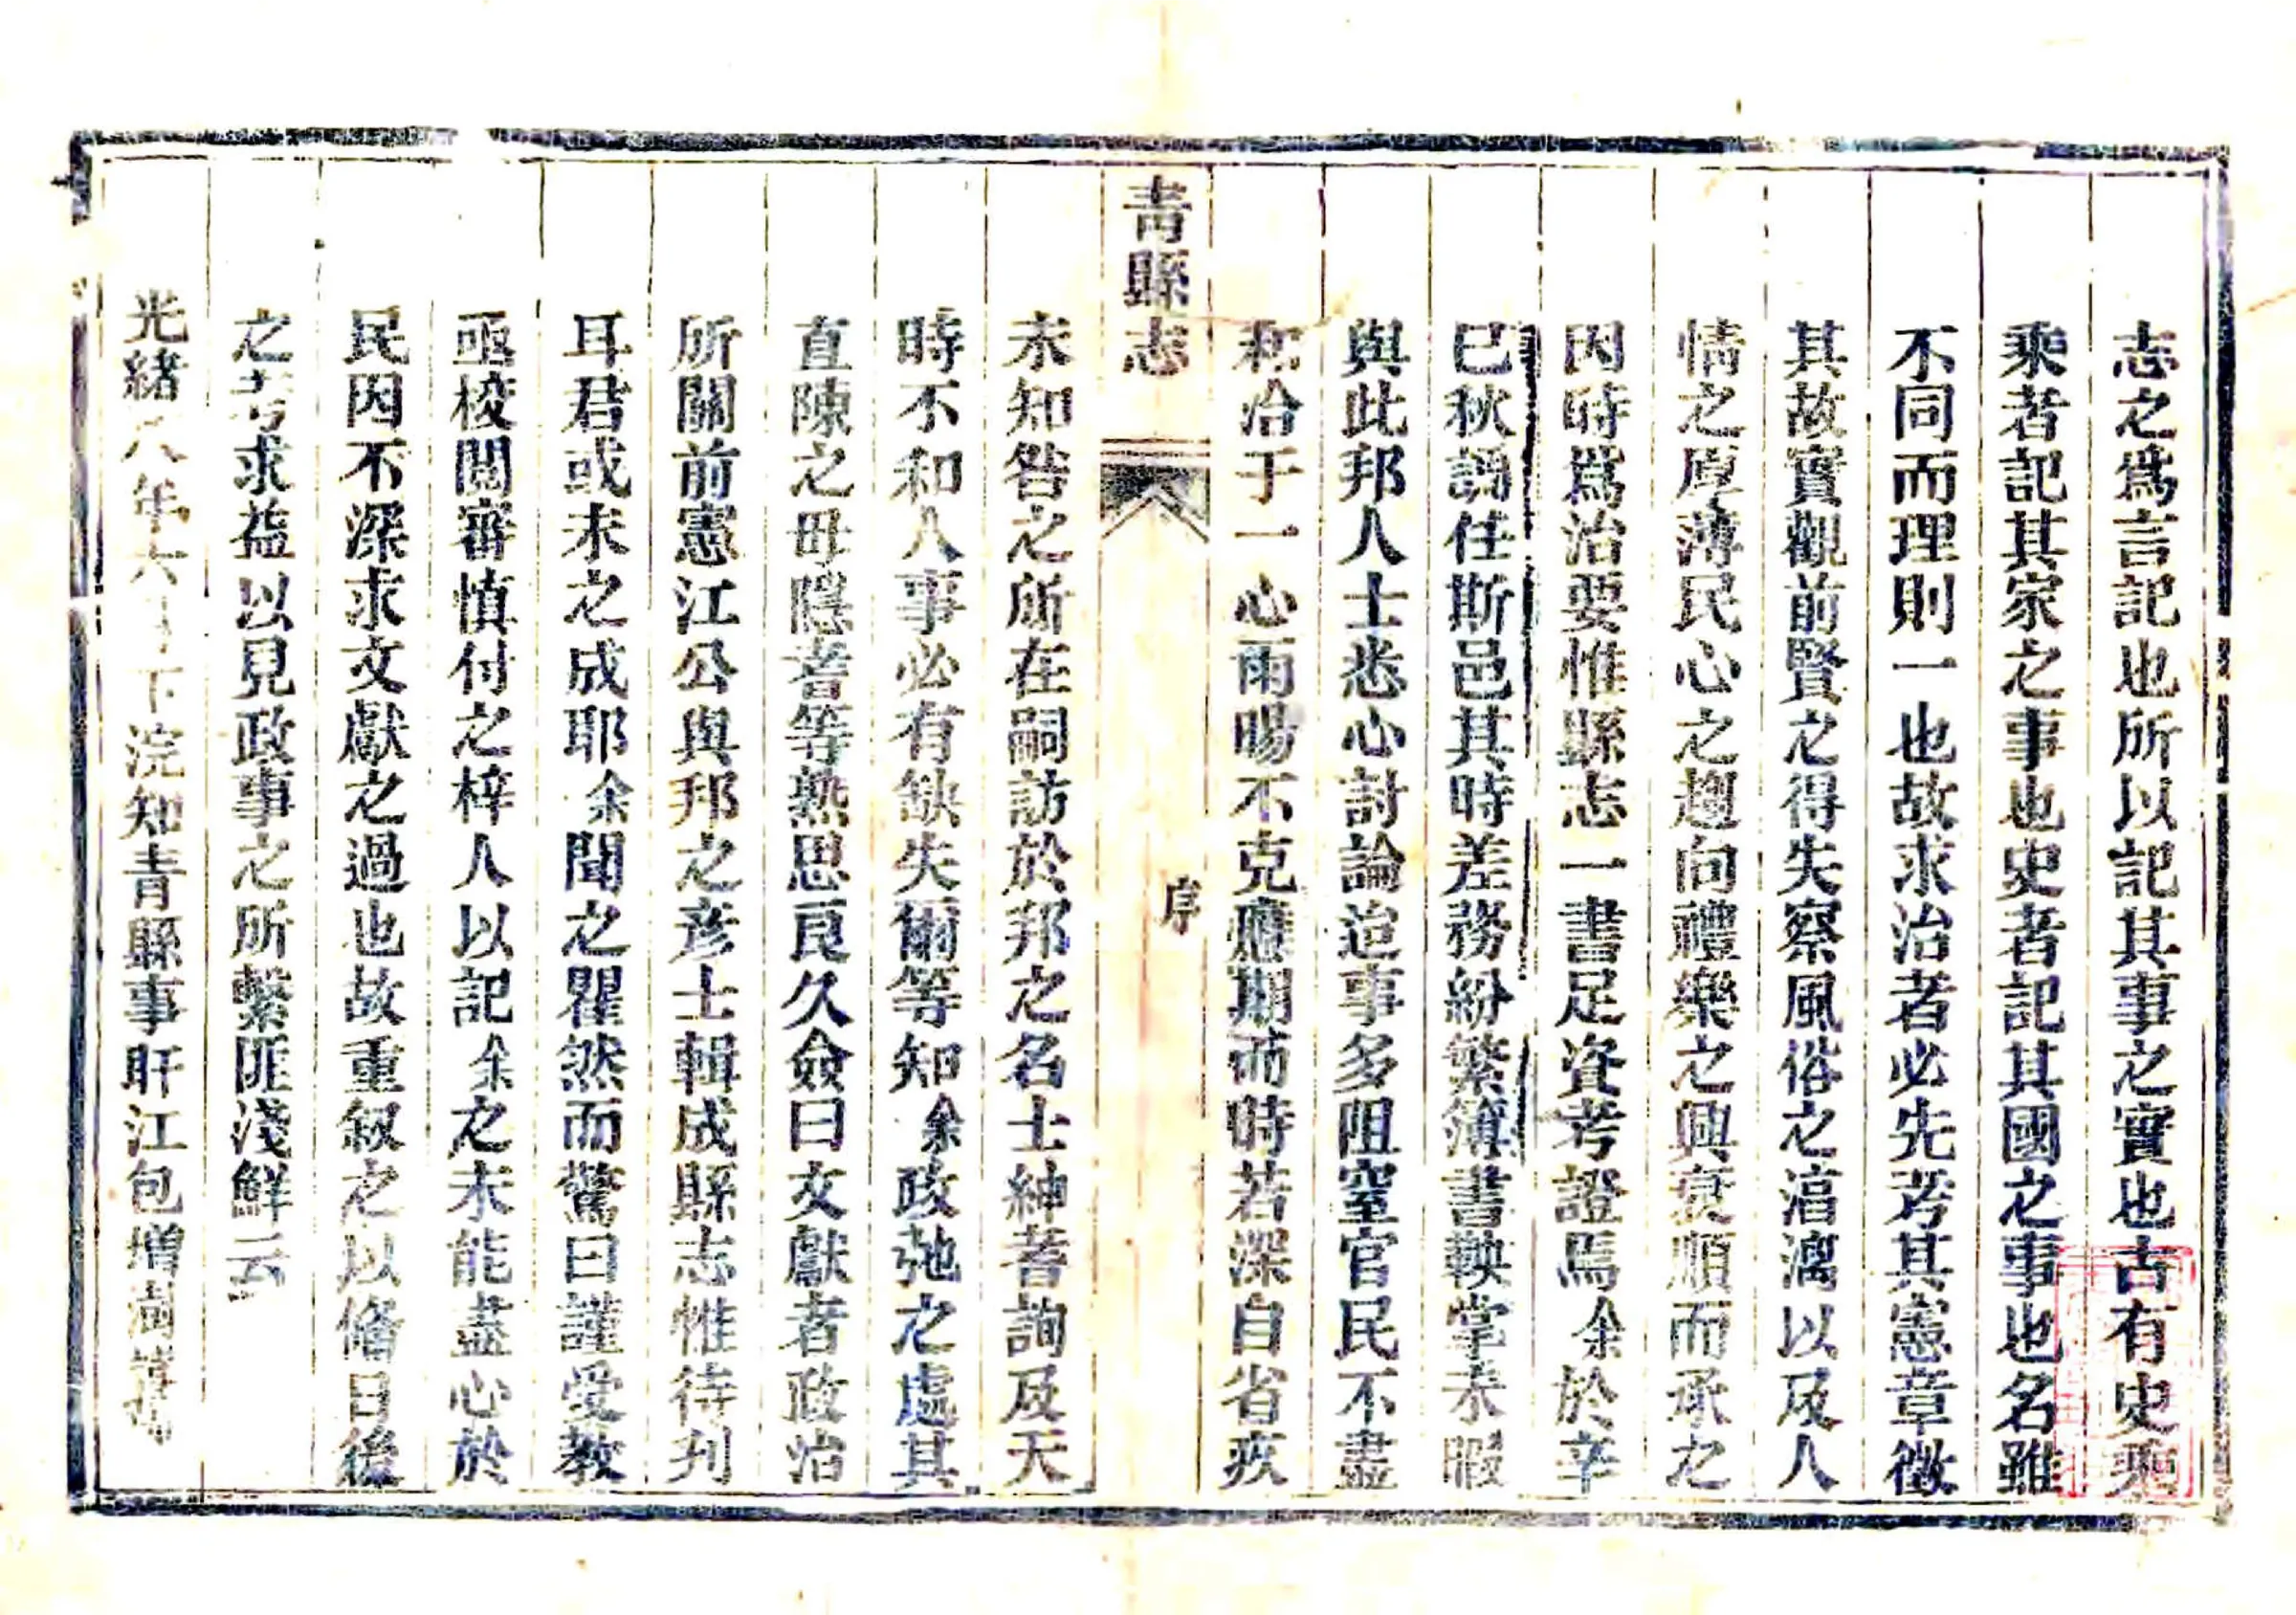 志之爲言記也所以記其事之實也古有史乘
乘者記其家之事也史者記其國之事也名雖
不同而理則一也故求治者必先考其憲章徵
其故實觀前賢之得失察風俗之湻漓以及人
情之厚薄民心之趨向禮樂之興衰順而承之
因時爲治要惟縣志一書足資考證焉余於辛
巳秋調任斯邑其時差務紛繁簿書鞅掌未暇
與此邦人士悉心討論迨事多阻窒官民不盡
和洽于一心雨暘不克應期而時若深自省疚
青縣志
序
未知咎之所在嗣訪於邦之名士紳耆詢及天
時不和人事必有缺失爾等知余政弛之處其
直陳之毋隱耆等熟思良久僉曰文獻者政治
所關前憲江公與邦之彥士輯成縣志惟待刋
耳君或未之成耶余聞之瞿然而驚曰謹受教
亟校閱審慎付之梓人以記余之未能盡心於
民因不深求文獻之過也故重叙之以俻日後
之考求益以見政事之所繫匪淺鮮云
光緒八年六月下浣知青縣事盱江包增澍